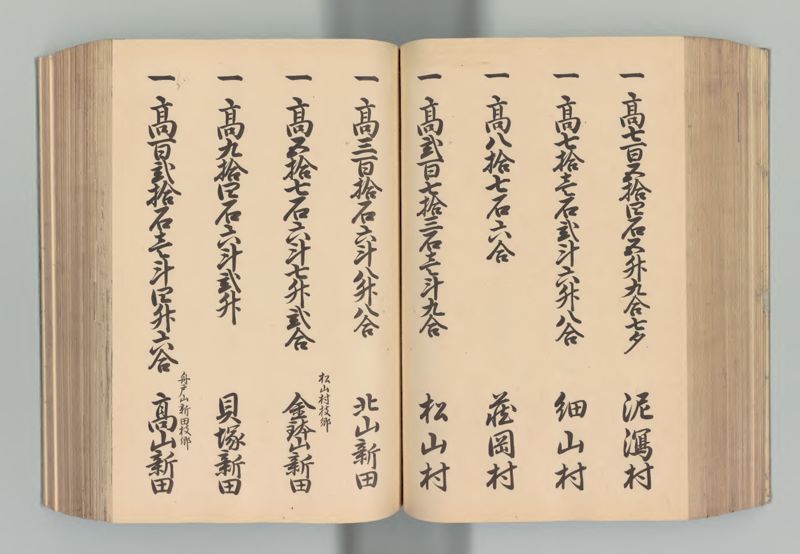 一 高七百五拾四石五升九合七夕 泥潟村
一 高七拾壱石弐斗六升八合 細山村
一 高八拾七石六合 蔵岡村
一 高弐百七拾三石壱斗九合 松山村
一 高三百拾石六斗八升八合 北山新田
松山村枝郷
一 高五拾七石六斗七升弐合 金鉢山新田
一 高九拾四石六斗弐升 貝塚新田
舟戸山新田枝郷
一 高百弐拾石壱斗四升六合 高山新田